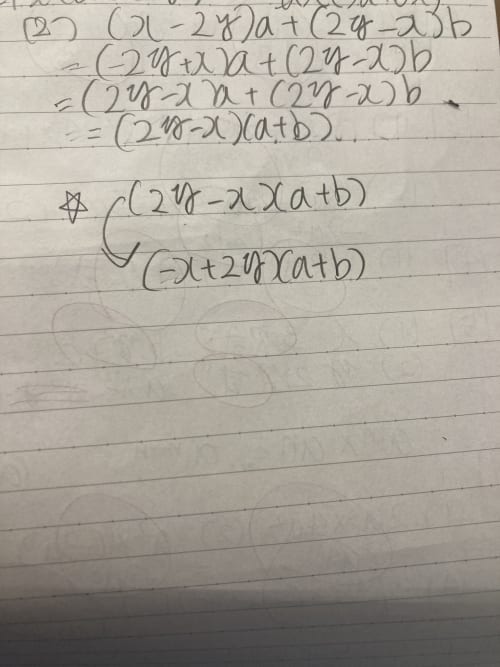 (2) (x-2y)a+(2y-x)b
=(-2y+x)a+(2y-x)b
=(2y-x)a+(2y-x)b
=(2y-x)(a+b)
☆ (2y-x)(a+b)
(-x+2y)(a+b)